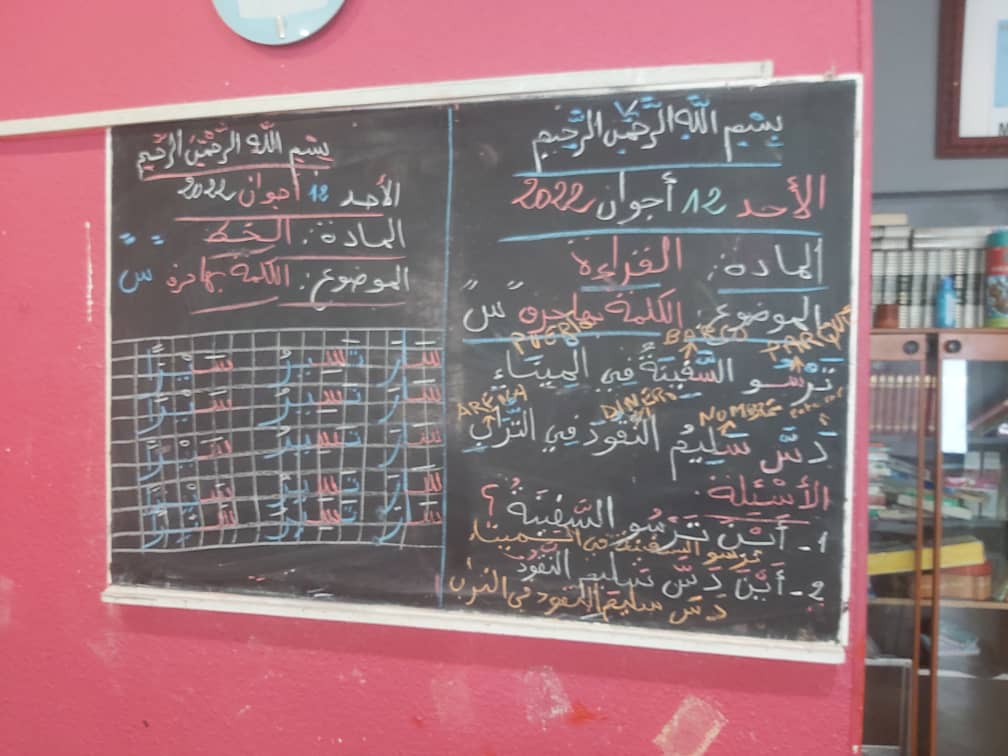 بِسْمِ اللَّهِ الرَّحْمَٰنِ الرَّحِيمِ
الأحد 12 أجوان 2022
المادة: القراءة
الموضوع: الكلمة بها حرف سَّ سً
PUERTO BARCO PARQUE
تَرْسُو السَّفِينَةُ فِي المِينَاءِ
ARENA DINERO NOMBRE
دَسَّ سَلِيمُ النُّقُودَ فِي التُّرَابِ
الأَسْئِلَة:
1- أَيْنَ تَرْسُو السَّفِينَةُ ؟
ترسو السفينة في الميناء
2- أَيْنَ دَسَّ سَلِيم النُّقُودَ
دَسَّ سليم النقود في التراب
بِسْمِ اللَّهِ الرَّحْمَٰنِ الرَّحِيمِ
الأحد 12 أجوان 2022
المادة: الخط
الموضوع: الكلمة بها حرف س
سَارَ تَسِيرُ سَيْرًا
سَارَ تَسِيرُ سَيْرًا
سَارَ تَسِيرُ سَيْرًا
سَارَ تَسِيرُ سَيْرًا
سَارَ تَسِيرُ سَيْرًا